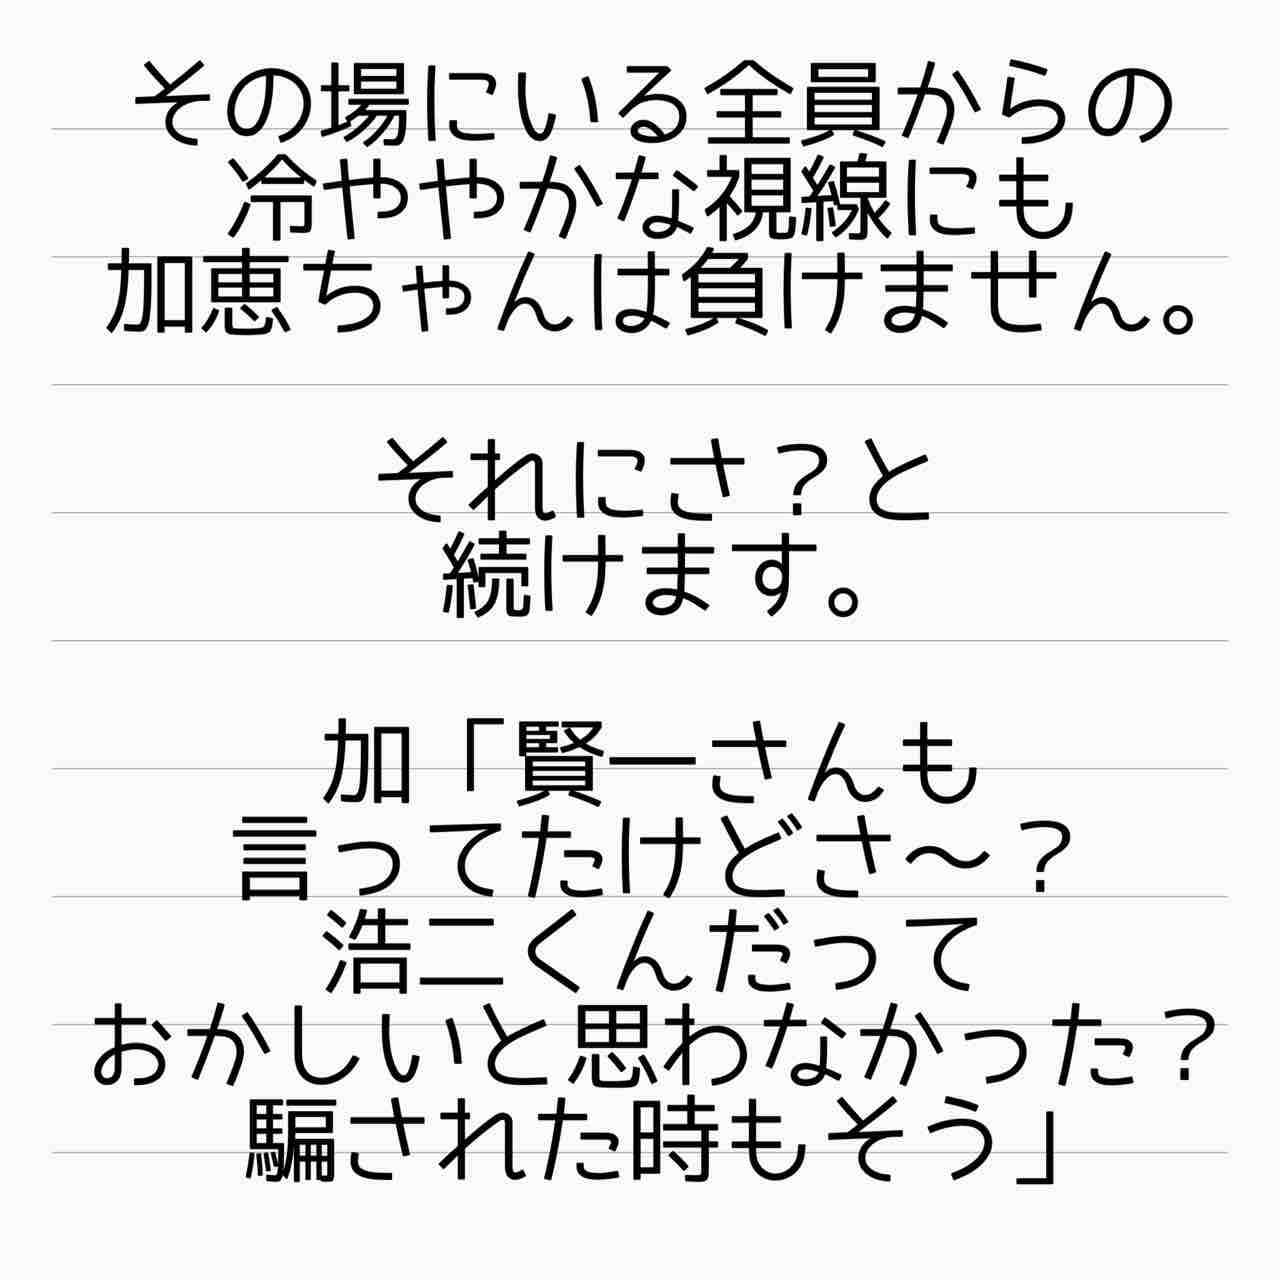 その場にいる全員からの
冷ややかな視線にも
加恵ちゃんは負けません。
それにさ？と
続けます。
加「賢一さんも
言ってたけどさ〜？
浩二くんだって
おかしいと思わなかった？
騙された時もそう」